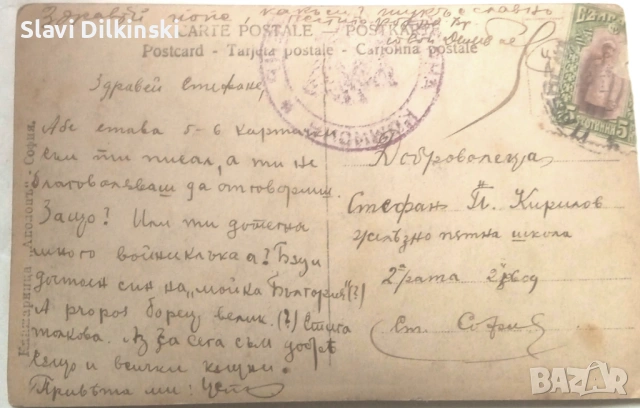 Slavi Dilkinski
Здравей
CARTE POSTALE – ПОСТКАРТА
Postcard – Tarjeta postale – Cartolina postale
Здравей Стефане,
Абе става 5-6 картички
съм ти писал, а ти не
благоволяваш да отговориш.
Защо? Или ти дотегна
много войниклъка? Бъди
достоен син на „майка България“(?)
А propos борец велик. (?) Стига
толкова. Аз за сега съм добрѣ
също и всички
Привѣта ми:
Доброволеца
Стефан П. Кирилов
желѣзно пѫтна школа
2та рота 2й взвод
Ст. София
Книжарница „Аполонъ“ - София.
5
BAZAR
bg